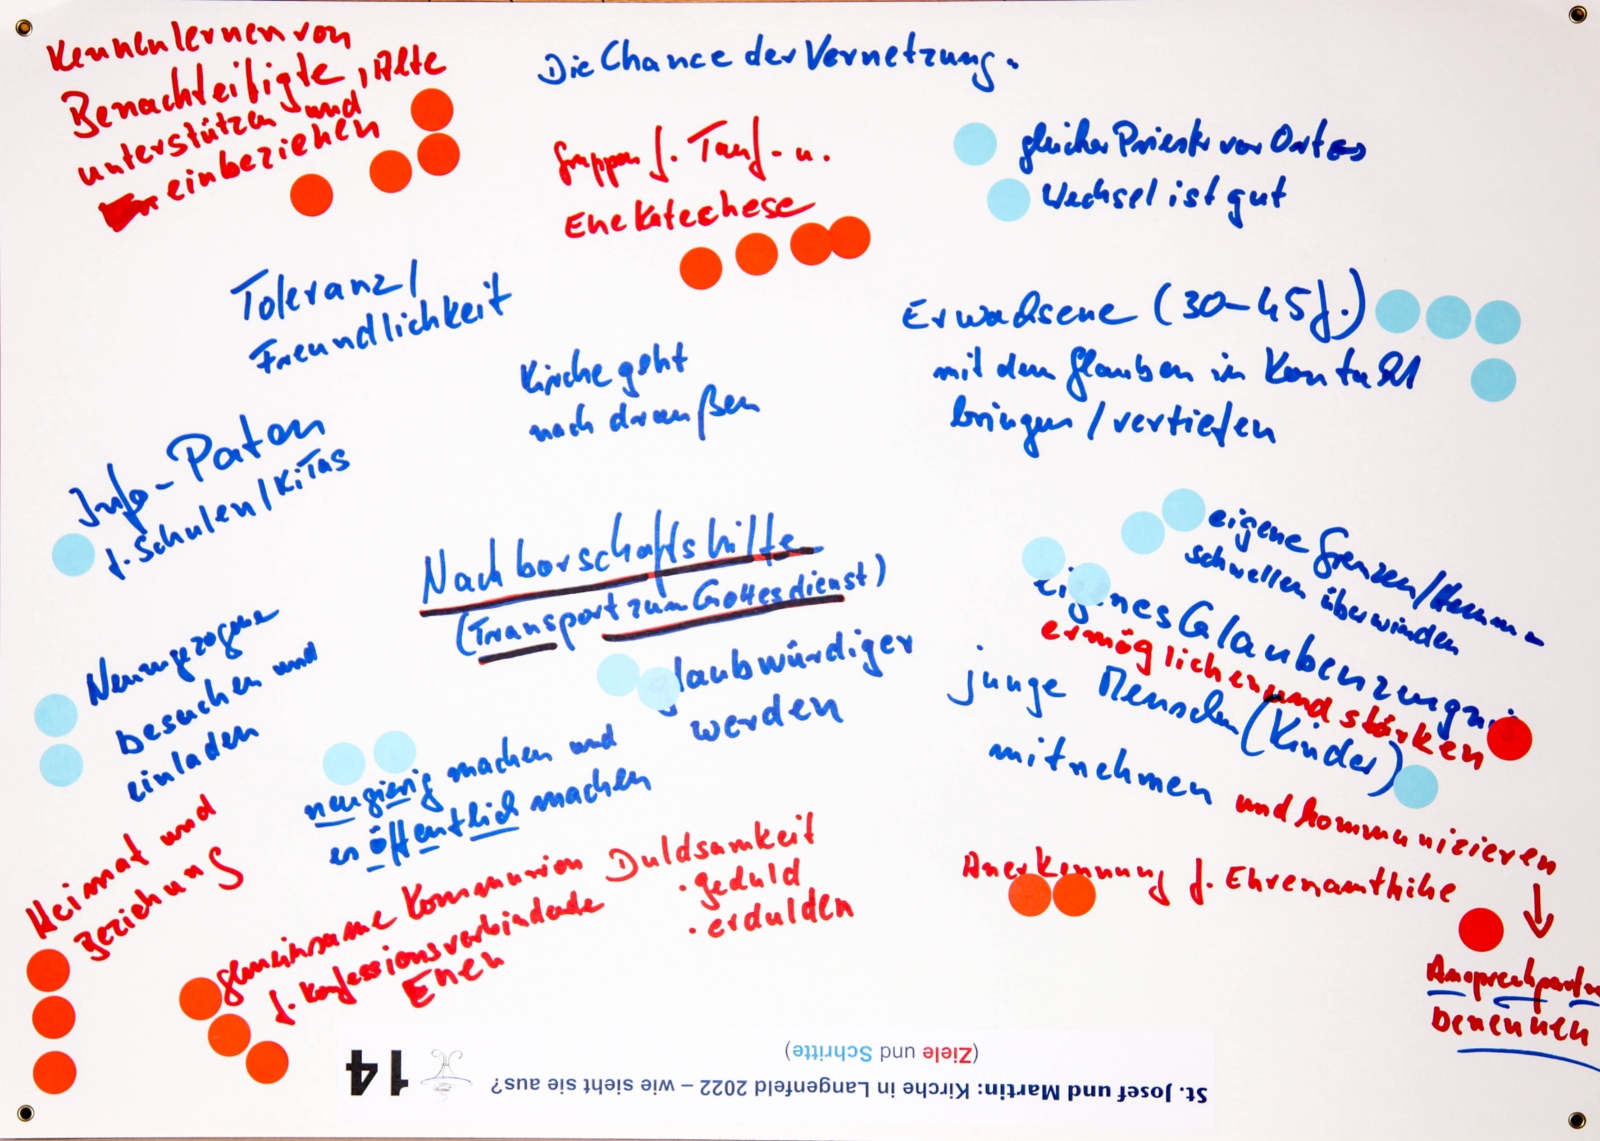 Kennenlernen von
Benachteiligte, Alte
unterstützen und
einbeziehen
Die Chance der Vernetzung.
Gruppen f. Tauf- u.
Ehekatechese
gleicher Priester vor Ort ↔
Wechsel ist gut
Toleranz/
Freundlichkeit
Erwachsene (30-45 J.)
mit dem Glauben in Kontakt
bringen/vertiefen
Kirche geht
nach draußen
Info-Paten
f. Schulen/KiTas
Nachbarschaftshilfe
(Transport zum Gottesdienst)
eigene Grenzen/Hemm-
schwellen überwinden
eigenes Glaubenzeugnis
ermöglichen und stärken
Neuzugezogene
besuchen und
einladen
glaubwürdiger
werden
junge Menschen (Kinder)
mitnehmen und kommunizieren
neugierig machen und
es öffentlich machen
Heimat und
Beziehung
gemeinsame Kommunion
f. konfessionsverbindende
Ehen
Duldsamkeit
· geduld
· erdulden
Anerkennung f. Ehrenamtliche
↓
Ansprechpartner
benennen
St. Josef und Martin: Kirche in Langenfeld 2022 – wie sieht sie aus?
(Ziele und Schritte)
14